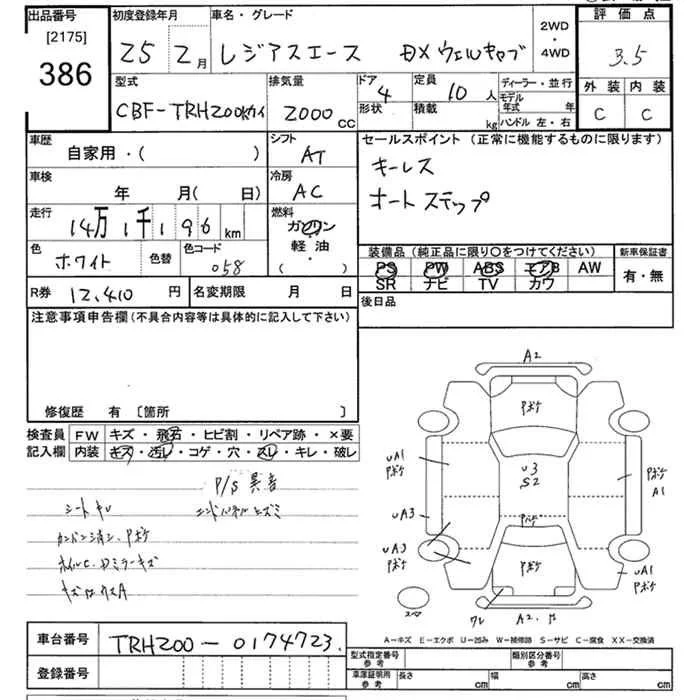 出品番号
[2175]
386
初度登録年月
25 2月
車名・グレード
レジアスエース DXウェルキャブ
2WD
・
4WD
評価点
3.5
外装 内装
C C
型式
CBF-TRH200K
排気量
2000 cc
ドア
4
形状
定員
10 人
積載
kg
ディーラー・並行
モデル年式 年
ハンドル 左・右
車歴
自家用・( )
シフト
AT
セールスポイント (正常に機能するものに限ります)
キーレス
オートステップ
車検
年 月( 日)
冷房
AC
走行
14万1千196 km
燃料
ガソリン
軽油
( ・ )
色
ホワイト
色替
色コード
058
装備品 (純正品に限り○をつけてください)
PS PW ABS エアB AW
SR ナビ TV カワ
新車保証書
有・無
R券 12,410 円
名変期限 月 日
後日品
注意事項申告欄 (不具合内容等は具体的に記入して下さい)
修復歴 有 〔箇所 〕
検査員
記入欄
FW キズ・飛石・ヒビ割・リペア跡・×要
内装 キズ・汚レ・コゲ・穴・スレ・キレ・破レ
P/S異音
シートキレ
エンドパネルヒズミ
A2
Pボケ
UA1
Pボケ
U3
S2
Pボケ
A1
UA3
Pボケ
UA3
Pボケ
Pボケ
UA1
Pボケ
スペア
ワレ
A2
A−キズ E−エクボ U−凹み W−補修跡 S−サビ C−腐食 XX−交換済
車台番号
TRH200-0174723
登録番号
型式指定番号
参考
類別区分番号
参考
車庫証明用
参考
長さ cm
幅 cm
高さ cm